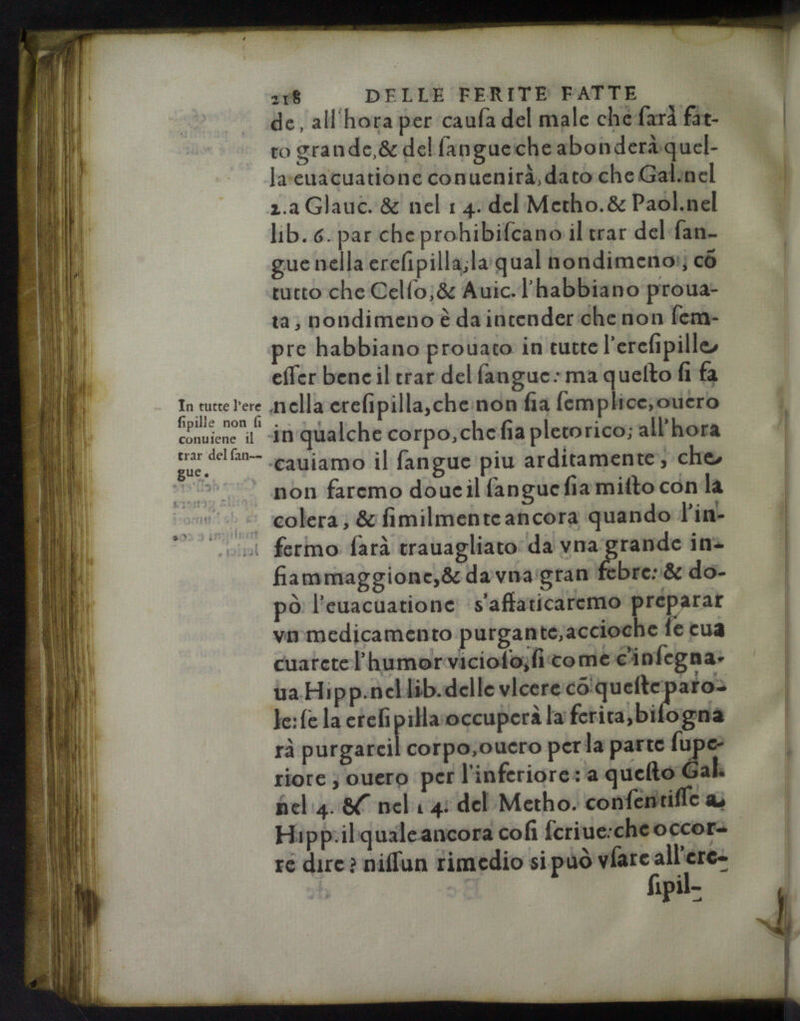 218 DELLE FERITE FATTE
de, all'hora per cauſa del male che ſarà fat-
to grande,& del ſangue che abonderà quel-
la euacuatione conuenirà,dato che Gal.nel
2.a Glauc. & nel 14. del Metho.& Paol.nel
lib. 6. par che prohibiſcano il trar del ſan-
gue nella ereſipilla,la qual nondimeno, cō
tutto che Celſo,& Auic. l'habbiano proua-
ta, nondimeno è da intender che non ſem-
pre habbiano prouato in tutte l'ereſipille
eſſer bene il trar del ſangue: ma queſto ſi fà
nella ereſipilla,che non ſia ſemplice,ouero
in qualche corpo,che ſia pletorico; all'hora
cauiamo il ſangue piu arditamente, che
non faremo doue il ſangue ſia miſto con la
colera, & ſimilmente ancora quando l'in-
fermo ſarà trauagliato da vna grande in-
fiammaggione,& da vna gran febre: & do-
pò l'euacuatione s'affaticaremo preparar
vn medicamento purgante,accioche ſe eua
cuarete l'humor vicioſo,ſi come c'inſegna-
ua Hipp.nel lib.delle vlcere cō queſte paro-
le:ſe la ereſipilla occuperà la ferita,biſogna
rà purgare il corpo,ouero per la parte ſupe-
riore, ouero per l'inferiore: a queſto Gal.
nel 4. & nel 14. del Metho. conſentiſſe a
Hipp.il quale ancora coſi ſcriue:che occor-
re dire? niſſun rimedio si può vſare all'ere-
ſipil-
In tutte l'ere
ſipille non ſi
conuiene il
trar del ſan--
gue.